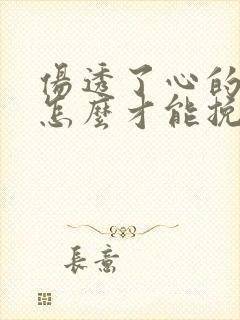 傷透了心的
怎麼才能挽
長意